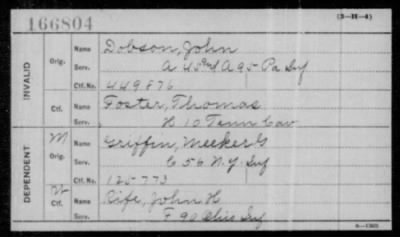 166804 (3-H-4)
INVALID
Orig. Name Dobson, John
Serv. A 45 and A 95 Pa Inf
Ctf. No. 449876
Ctf. Name Foster, Thomas
Serv. H 10 Tenn Cav
DEPENDENT
Orig. Name Griffin, Meeker G
Serv. C 56 N.Y. Inf
Ctf. No. 125773
Ctf. Name Rife, John H
Serv. F 90 Ohio Inf